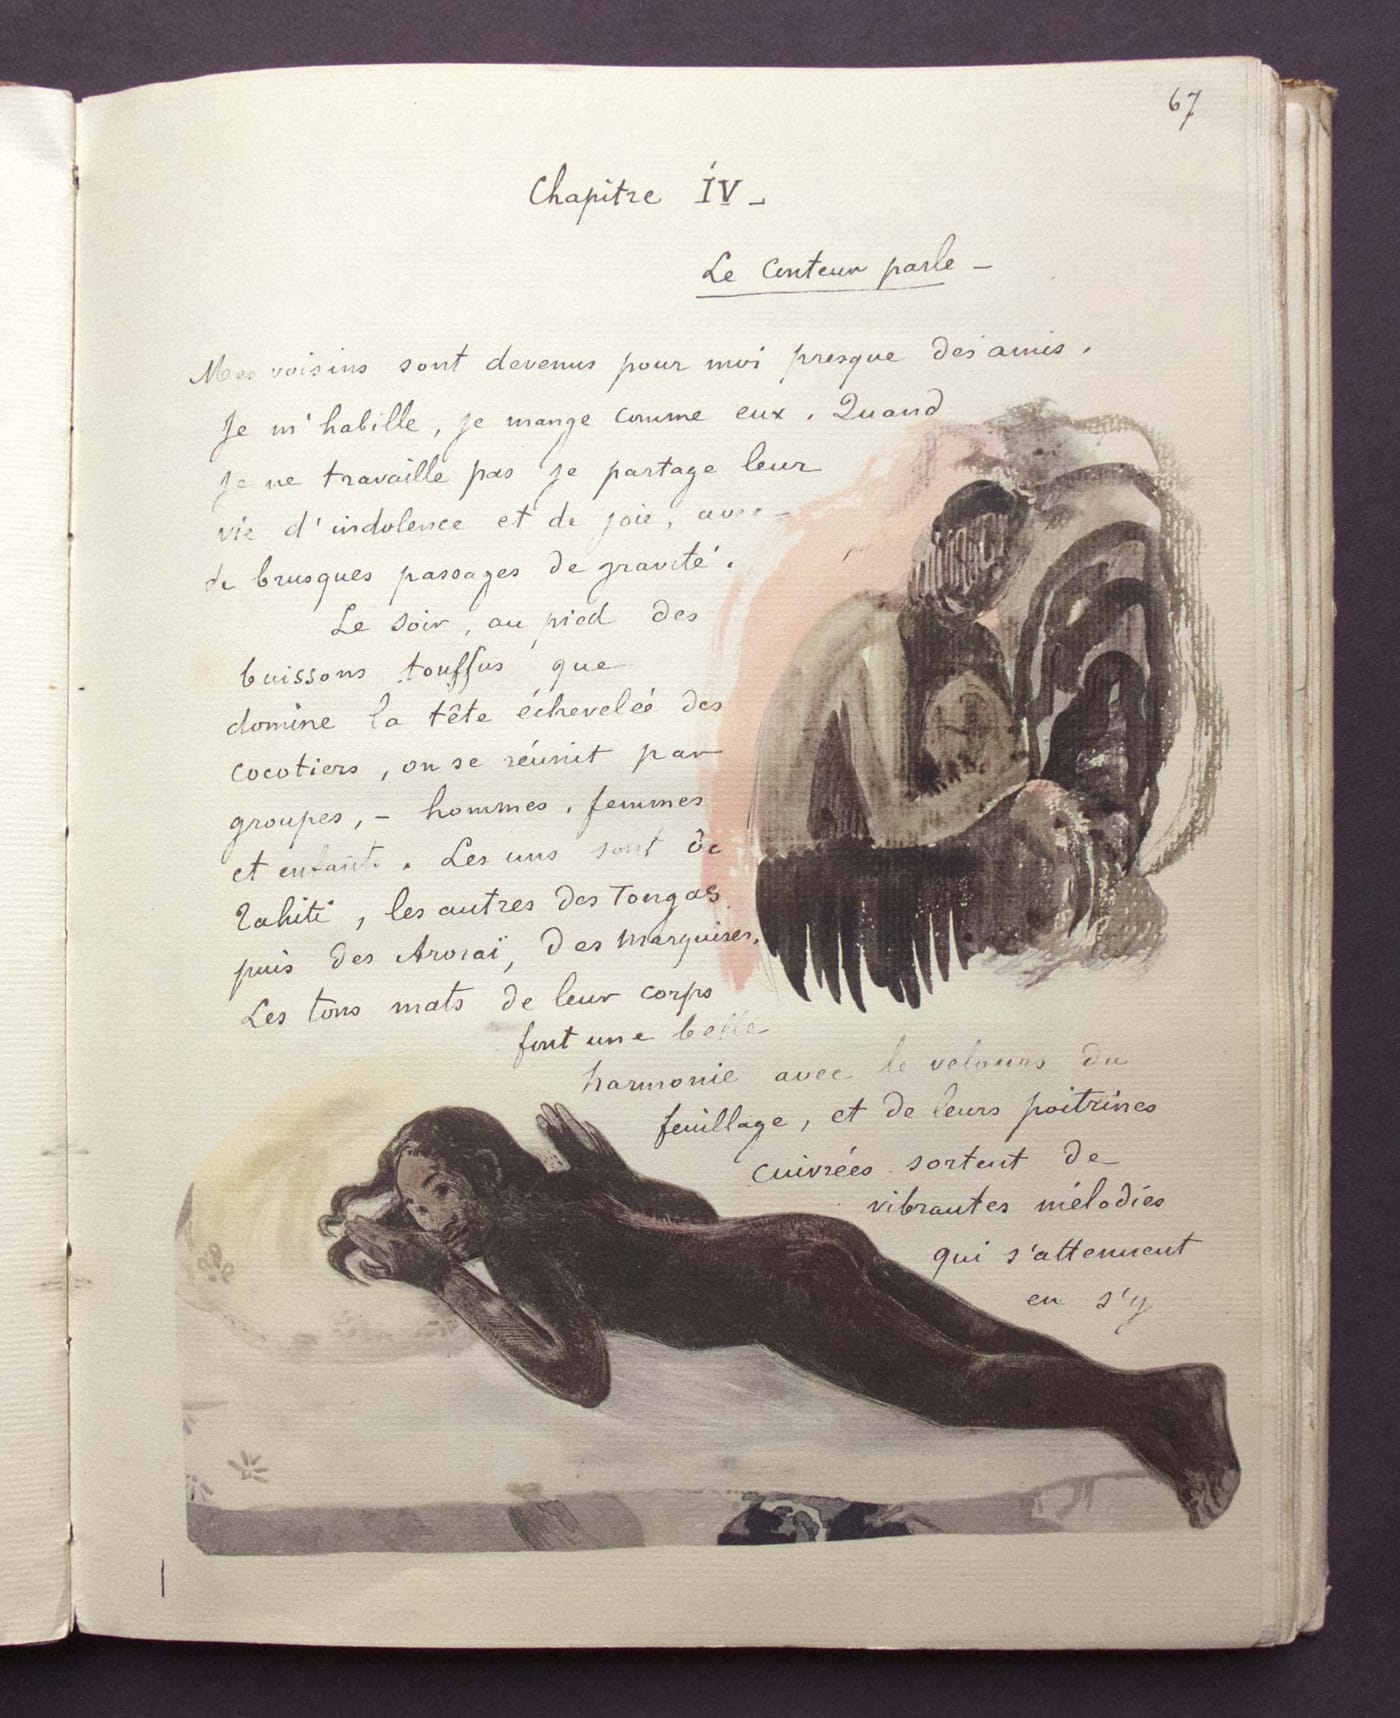 67
Chapitre IV_
Le Conteur parle _
Mes voisins sont devenus pour moi presque des amis.
Je m'habille, je mange comme eux. Quand
je ne travaille pas je partage leur
vie d'indolence et de joie, avec
de brusques passages de gravité.
Le soir, au pied des
buissons touffus que
domine la tête écheveleé des
cocotiers, on se réunit par
groupes, - hommes, femmes
et enfants. Les uns sont de
Tahiti, les autres des Tongas
puis des Aroraï, des Marquises.
Les tons mats de leur corps
font une belle
harmonie avec le velours du
feuillage, et de leurs poitrines
cuivrées sortent de
vibrantes mélodies
qui s'attenuent
en s'y